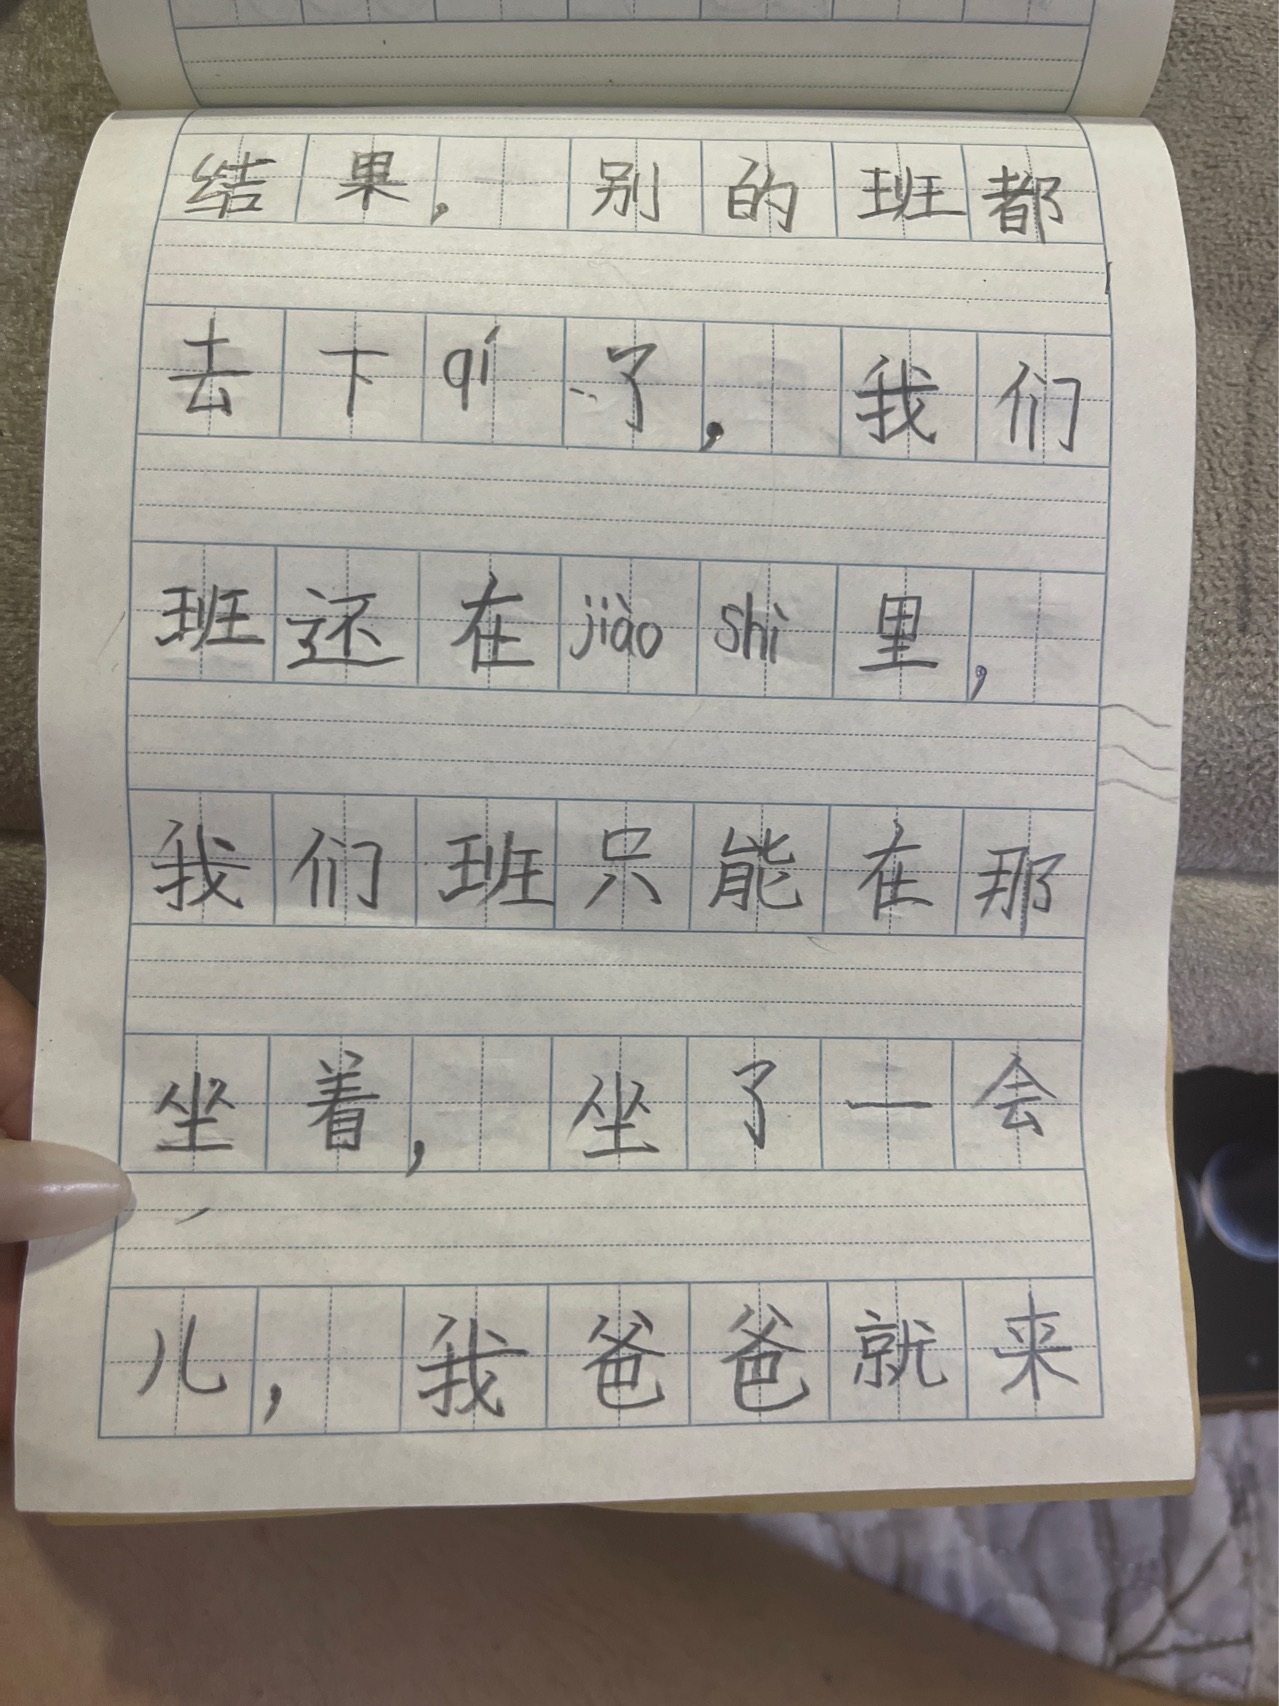 结果，别的班都
去下qí了，我们
班还在jiào shì里，
我们班只能在那
坐着，坐了一会
儿，我爸爸就来